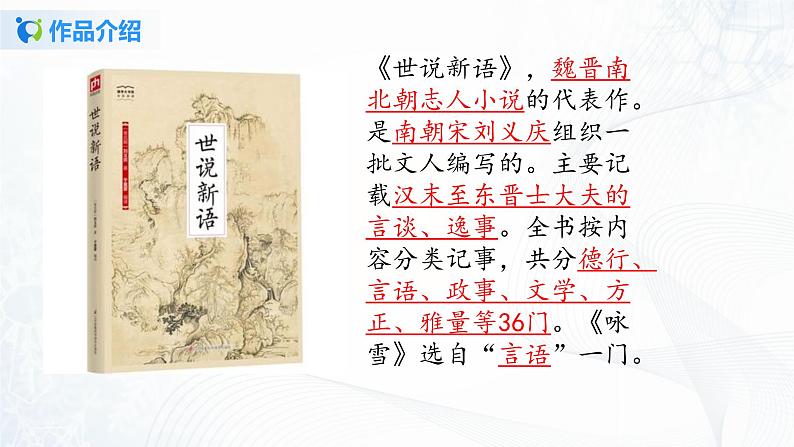 作品介绍
《世说新语》，魏晋南
北朝志人小说的代表作。
是南朝宋刘义庆组织一
批文人编写的。主要记
载汉末至东晋士大夫的
言谈、逸事。全书按内
容分类记事，共分德行、
言语、政事、文学、方
正、雅量等36门。《咏
雪》选自“言语”一门。
世说新语
世说新语